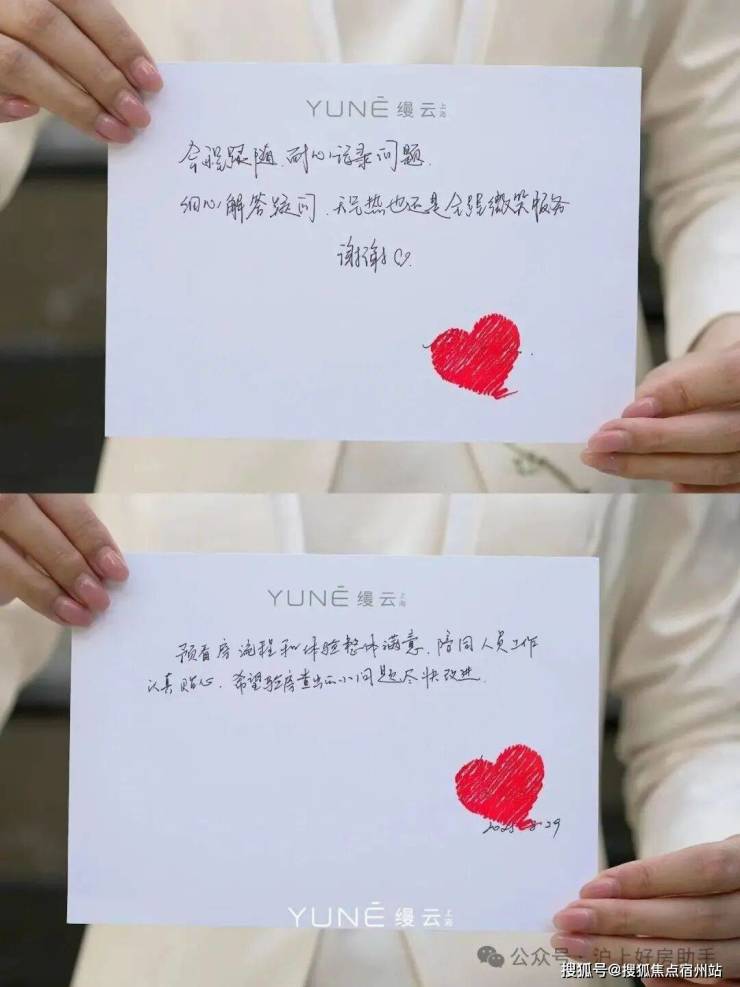 YUNĒ 缦云 上海
全程跟随、耐心记录问题.
细心解答疑问、天气热也还是全程微笑服务
谢谢♡.
YUNĒ 缦云 上海
预看房流程和体验整体满意、陪同人员工作
认真贴心、希望验房查出的小问题尽快改进.
2025-8-29
YUNĒ 缦云 上海
公众号·沪上好房助手
搜狐号@搜狐焦点宿州站